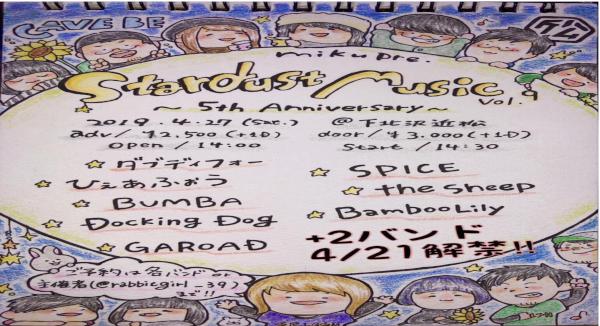 CAVE BE
miku pre.
Stardust Music vol.9
～ 5th Anniversary ～
2019.4.27 (sat.) @下北沢近松
adv/¥2,500(+1D) door/¥3,000(+1D)
open/14:00 start/14:30
☆ダブディフォー
☆ひぇあふぉう
☆BUMBA
☆Docking Dog
☆GAROAD
☆SPICE
☆the sheep
☆BambooLily
+2バンド
4/21解禁!!
ご予約は各バンド or
主催者(@rabbicgirl_39)
まで!!